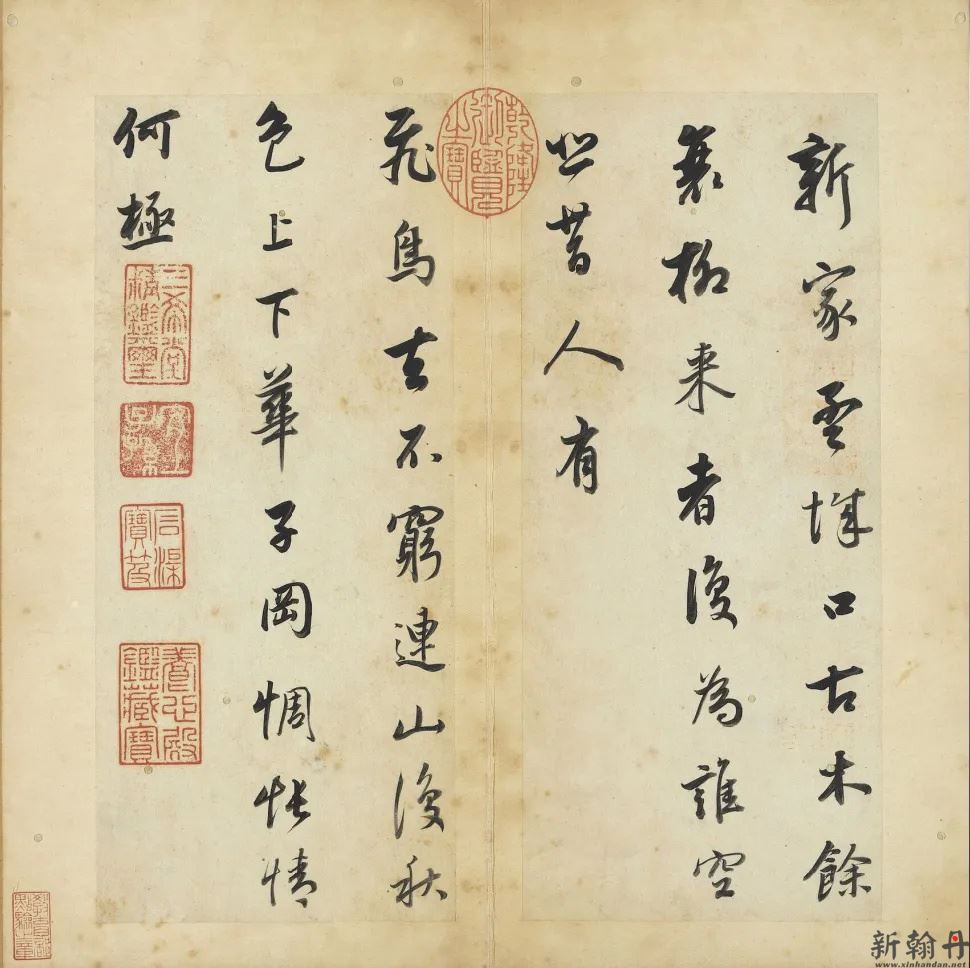 新家孟城口古木餘
衰柳来者復為誰空
悲昔人有
飛鳥去不窮連山復秋
色上下華子岡惆悵情
何極
乾隆御覽之寶
三希堂精鑑璽
石渠寶笈
養心殿鑑藏寶
新翰丹
www.xinhandan.net